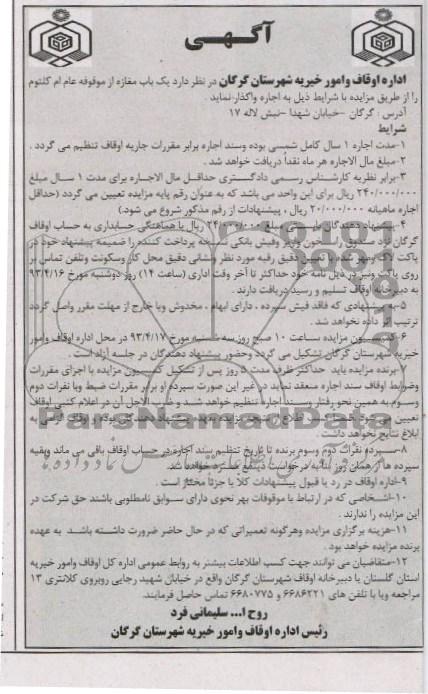 آگهی
اداره اوقاف وامور خیریه شهرستان گرگان در نظر دارد یک باب مغازه از موقوفه عام ام کلثوم
را از طریق مزایده با شرایط ذیل به اجاره واگذار نماید
آدرس : گرگان –خیابان شهدا –نبش لاله ۱۷
شرایط
۱-مدت اجاره ۱ سال کامل شمسی بوده وسند اجاره برابر مقررات جاریه اوقاف تنظیم می گردد .
۲-مبلغ مال الاجاره هر ماه نقداً دریافت خواهد شد .
۳-برابر نظریه کارشناس رسمی دادگستری حداقل مال الاجاره برای مدت ۱ سال مبلغ
۲۴۰/۰۰۰/۰۰۰ ریال برای این واحد می باشد که به عنوان رقم پایه مزایده تعیین می گردد (حداقل
اجاره ماهیانه ۲۰/۰۰۰/۰۰۰ ریال ، پیشنهادات از رقم مذکور شروع می شود.)
۴-پیشنهاد دهندگان بایستی مبلغ ۲۴/۰۰۰/۰۰۰ ریال با هماهنگی حسابداری به حساب اوقاف
گرگان نزد صندوق واریز وفیش بانکی پرداخت کننده را ضمیمه پیشنهاد خود در
پاکت لاک ومهر شده دقیق رقبه مورد نظر ونشانی دقیق محل کار وسکونت وتلفن تماس بر
روی پاکت ونیز در ذیل نامه خود حداکثر تا آخر وقت اداری (ساعت ۱۴) روز دوشنبه مورخ ۹۳/۴/۱۶
به دبیرخانه اوقاف تسلیم و رسید دریافت دارند .
۵-به پیشنهادی که فاقد فیش سپرده ، دارای ابهام ، مخدوش ویا خارج از مهلت مقرر واصل گردد
ترتیب اثر داده نخواهد شد .
۶-کمیسیون مزایده ساعت ۱۰ صبح روز سه شنبه مورخ ۹۳/۴/۱۷ در محل اداره اوقاف وامور
خیریه شهرستان گرگان تشکیل می گردد وحضور پیشنهاد دهندگان در جلسه آزاد است .
۷-برنده مزایده باید حداکثر ظرف مدت ۵ روز پس از تشکیل کمیسیون مزایده با اجرای مقررات
وضوابط اوقاف سند اجاره منعقد نماید در غیر این صورت سپرده او برابر مقررات ضبط وبا نفرات دوم
وسوم به همین نحو رفتار وسند اجاره تنظیم خواهد شد و ضرب الاجل آن در اعلام کتبی اوقاف
تعیین خواهد شد
ابلاغ نتایج نخواهد داشت .
۸-سپرده نفرات دوم وسوم برنده تا تاریخ تنظیم سند اجاره در حساب اوقاف باقی می ماند وبقیه
سپرده ها از همان روز بنا به درخواست ذینفع مسترد خواهد شد.
۹-اداره اوقاف در رد یا قبول پیشنهادات کلا یا جزئاً مختار است .
۱۰-اشخاصی که در ارتباط با موقوفات بهر نحوی دارای سوابق نامطلوبی باشند حق شرکت در
این مزایده را ندارند .
۱۱-هزینه برگزاری مزایده وهرگونه تعمیراتی که در حال حاضر ضرورت داشته باشد به عهده
برنده مزایده خواهد بود .
۱۲-متقاضیان می توانند جهت کسب اطلاعات بیشتر به روابط عمومی اداره کل اوقاف وامور خیریه
استان گلستان یا دبیرخانه اوقاف شهرستان گرگان واقع در خیابان شهید رجایی روبروی کلانتری ۱۳
مراجعه ویا با تلفن های ۶۶۸۶۲۲۱ و ۶۶۸۰۷۷۵ تماس حاصل فرمایند.
روح ا... سلیمانی فرد
رئیس اداره اوقاف وامور خیریه شهرستان گرگان
ParsNamadData